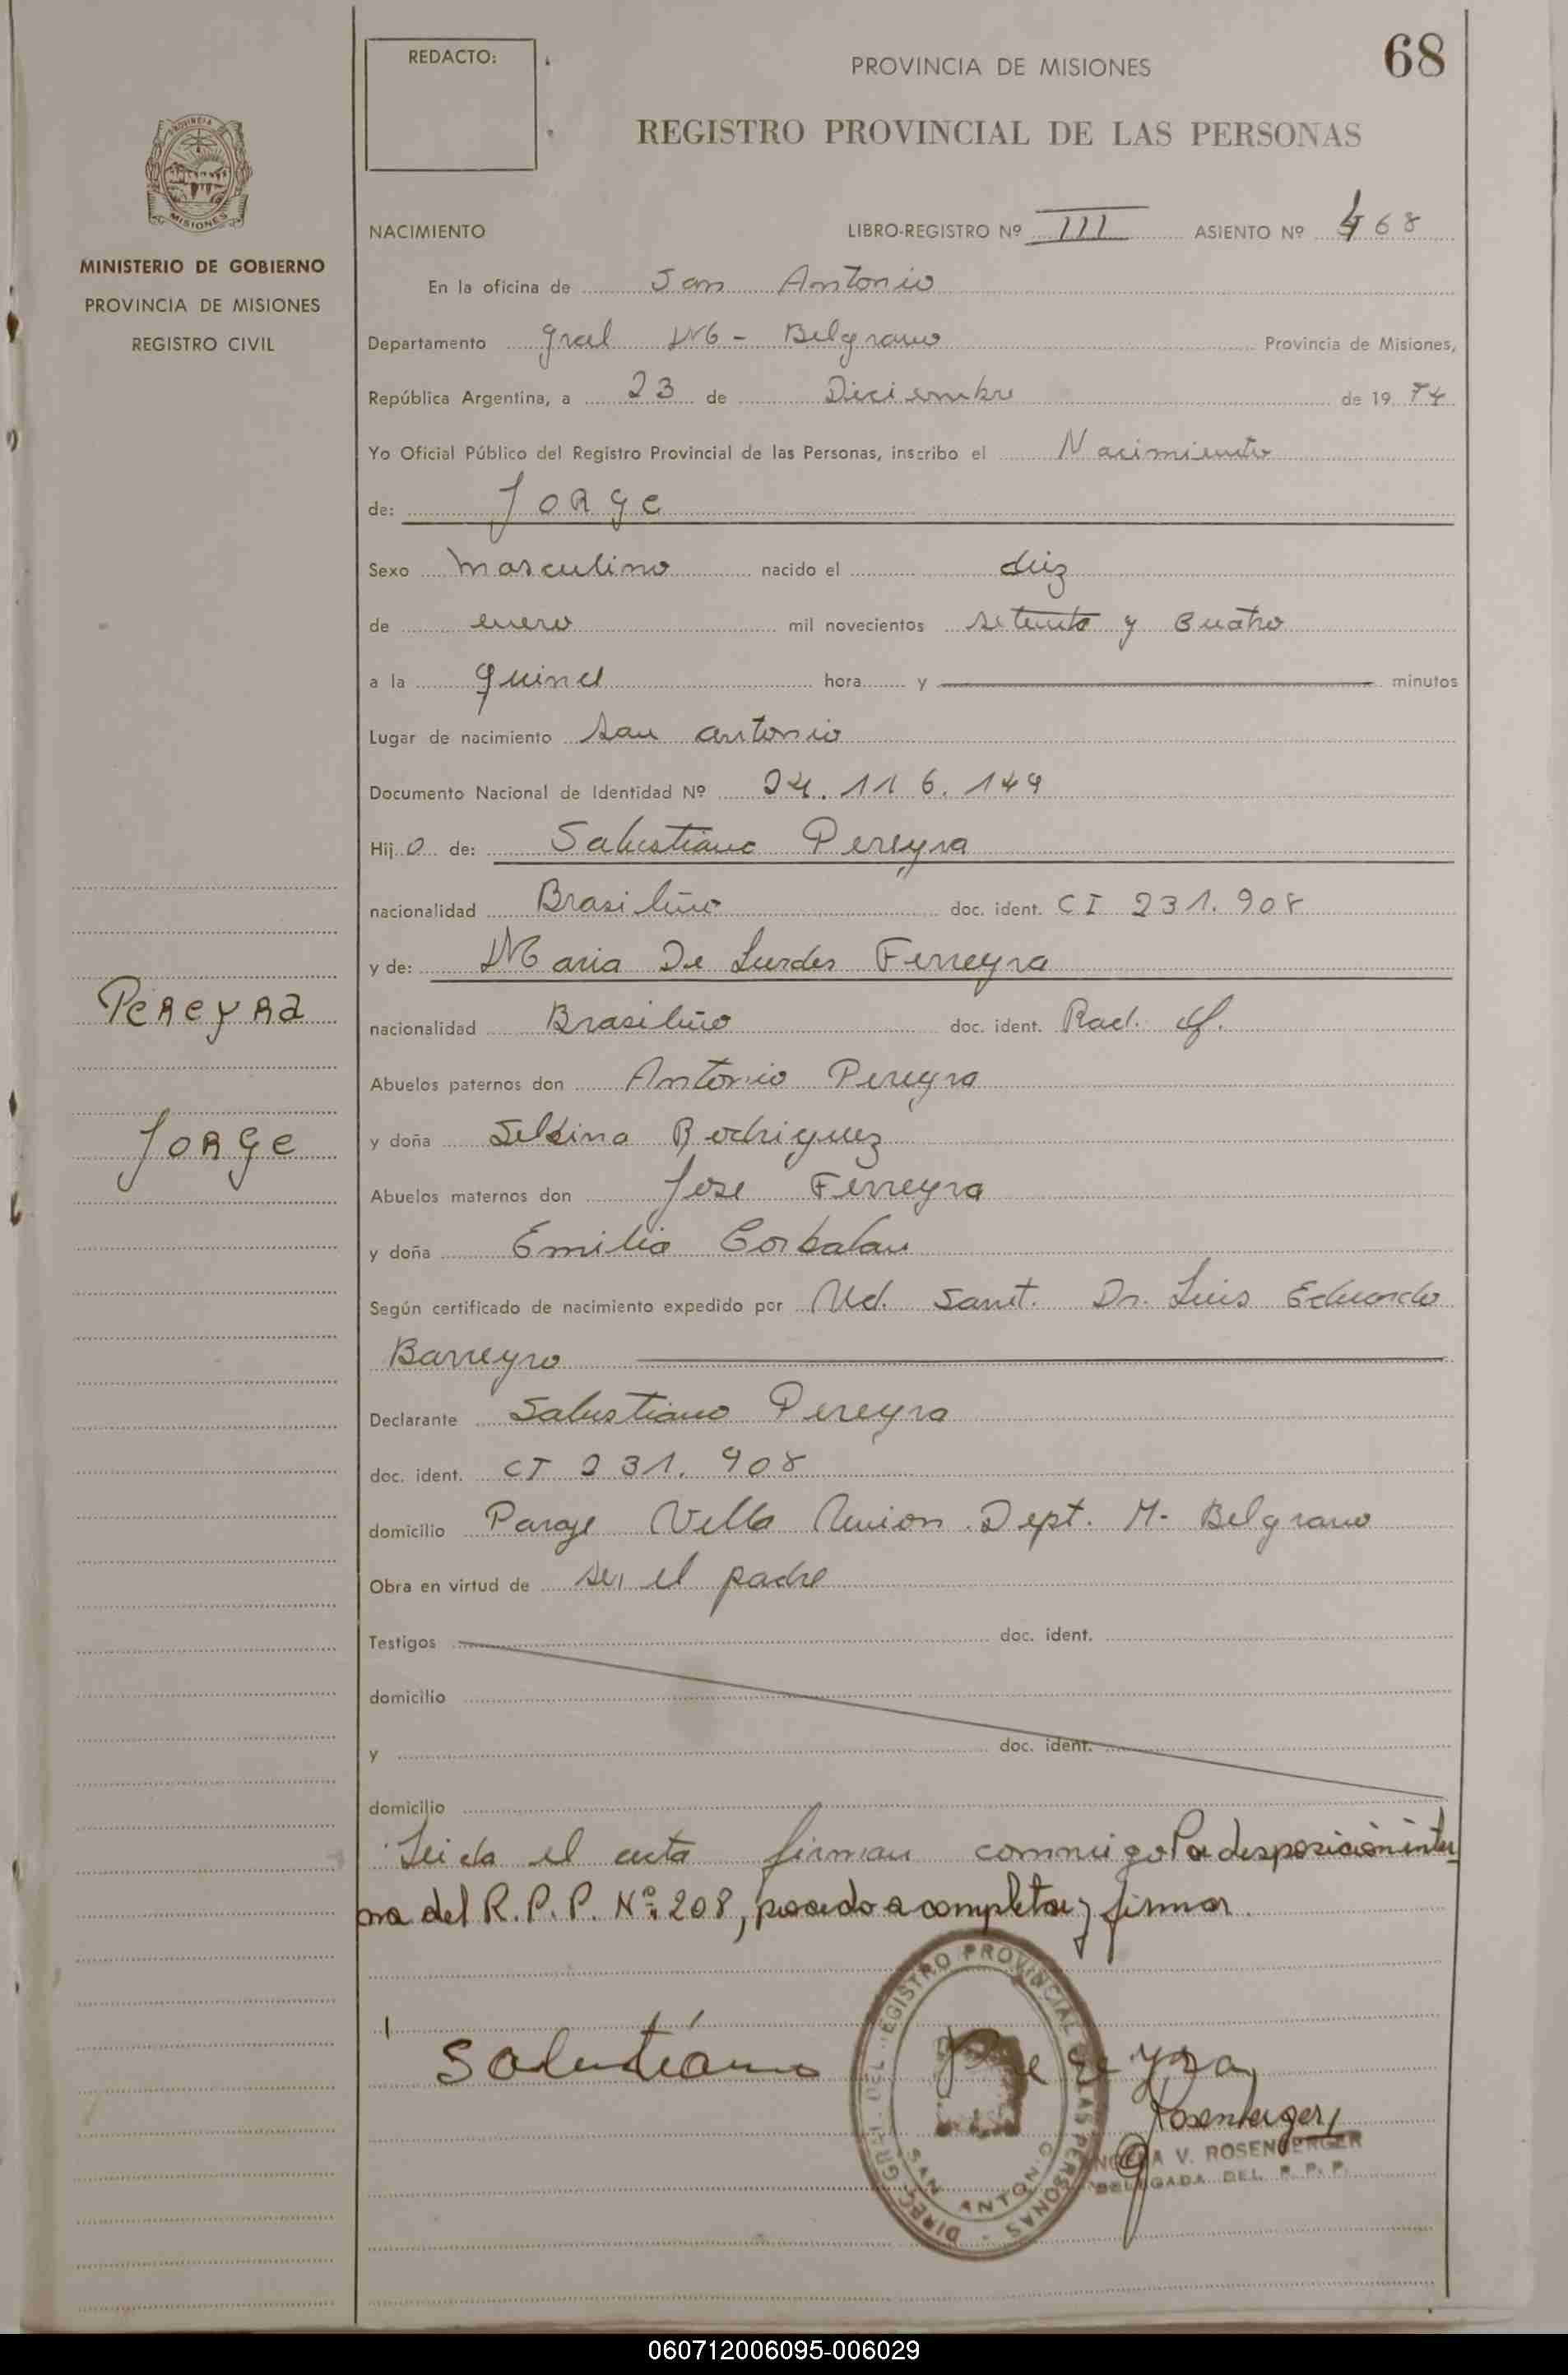 68
REDACTO:
PROVINCIA DE MISIONES
REGISTRO PROVINCIAL DE LAS PERSONAS
PROVINCIA
MISIONES
MINISTERIO DE GOBIERNO
PROVINCIA DE MISIONES
REGISTRO CIVIL
NACIMIENTO LIBRO-REGISTRO Nº III ASIENTO Nº 468
En la oficina de San Antonio
Departamento Gral M- Belgrano Provincia de Misiones,
República Argentina, a 23 de Diciembre de 19 74
Yo Oficial Público del Registro Provincial de las Personas, inscribo el Nacimiento
de: Jorge
Sexo masculino nacido el diez
de enero mil novecientos setenta y cuatro
a la quince hora y minutos
Lugar de nacimiento San antonio
Documento Nacional de Identidad Nº 24.116.149
Hij o de: Salustiano Pereyra
nacionalidad Brasileño doc. ident. CI 231.908
y de: Maria De Lurdes Ferreyra
nacionalidad Brasileño doc. ident. Rad.
Pereyra
Jorge
Abuelos paternos don Antonio Pereyra
y doña Rodriguez
Abuelos maternos don Jose Ferreyra
y doña Emilia Corbalan
Según certificado de nacimiento expedido por Ud. Sanit. Dr. Luis Eduardo
Barreyro
Declarante Salustiano Pereyra
doc. ident. CI 231.908
domicilio Paraje Villa Union Dept. M- Belgrano
Obra en virtud de ser el padre
Testigos doc. ident.
domicilio
y doc. ident.
domicilio
Leida el acta firman conmigo Por desposición inter
na del R.P.P. Nº 208, procedo a completar y firmar.
Salustiano Pereyra
Rosenberger
V. ROSENBERGER
DELEGADA DEL R.P.P.
DIREC. GRAL. DEL REGISTRO PROVINCIAL DE LAS PERSONAS
SAN ANTONIO
060712006095-006029